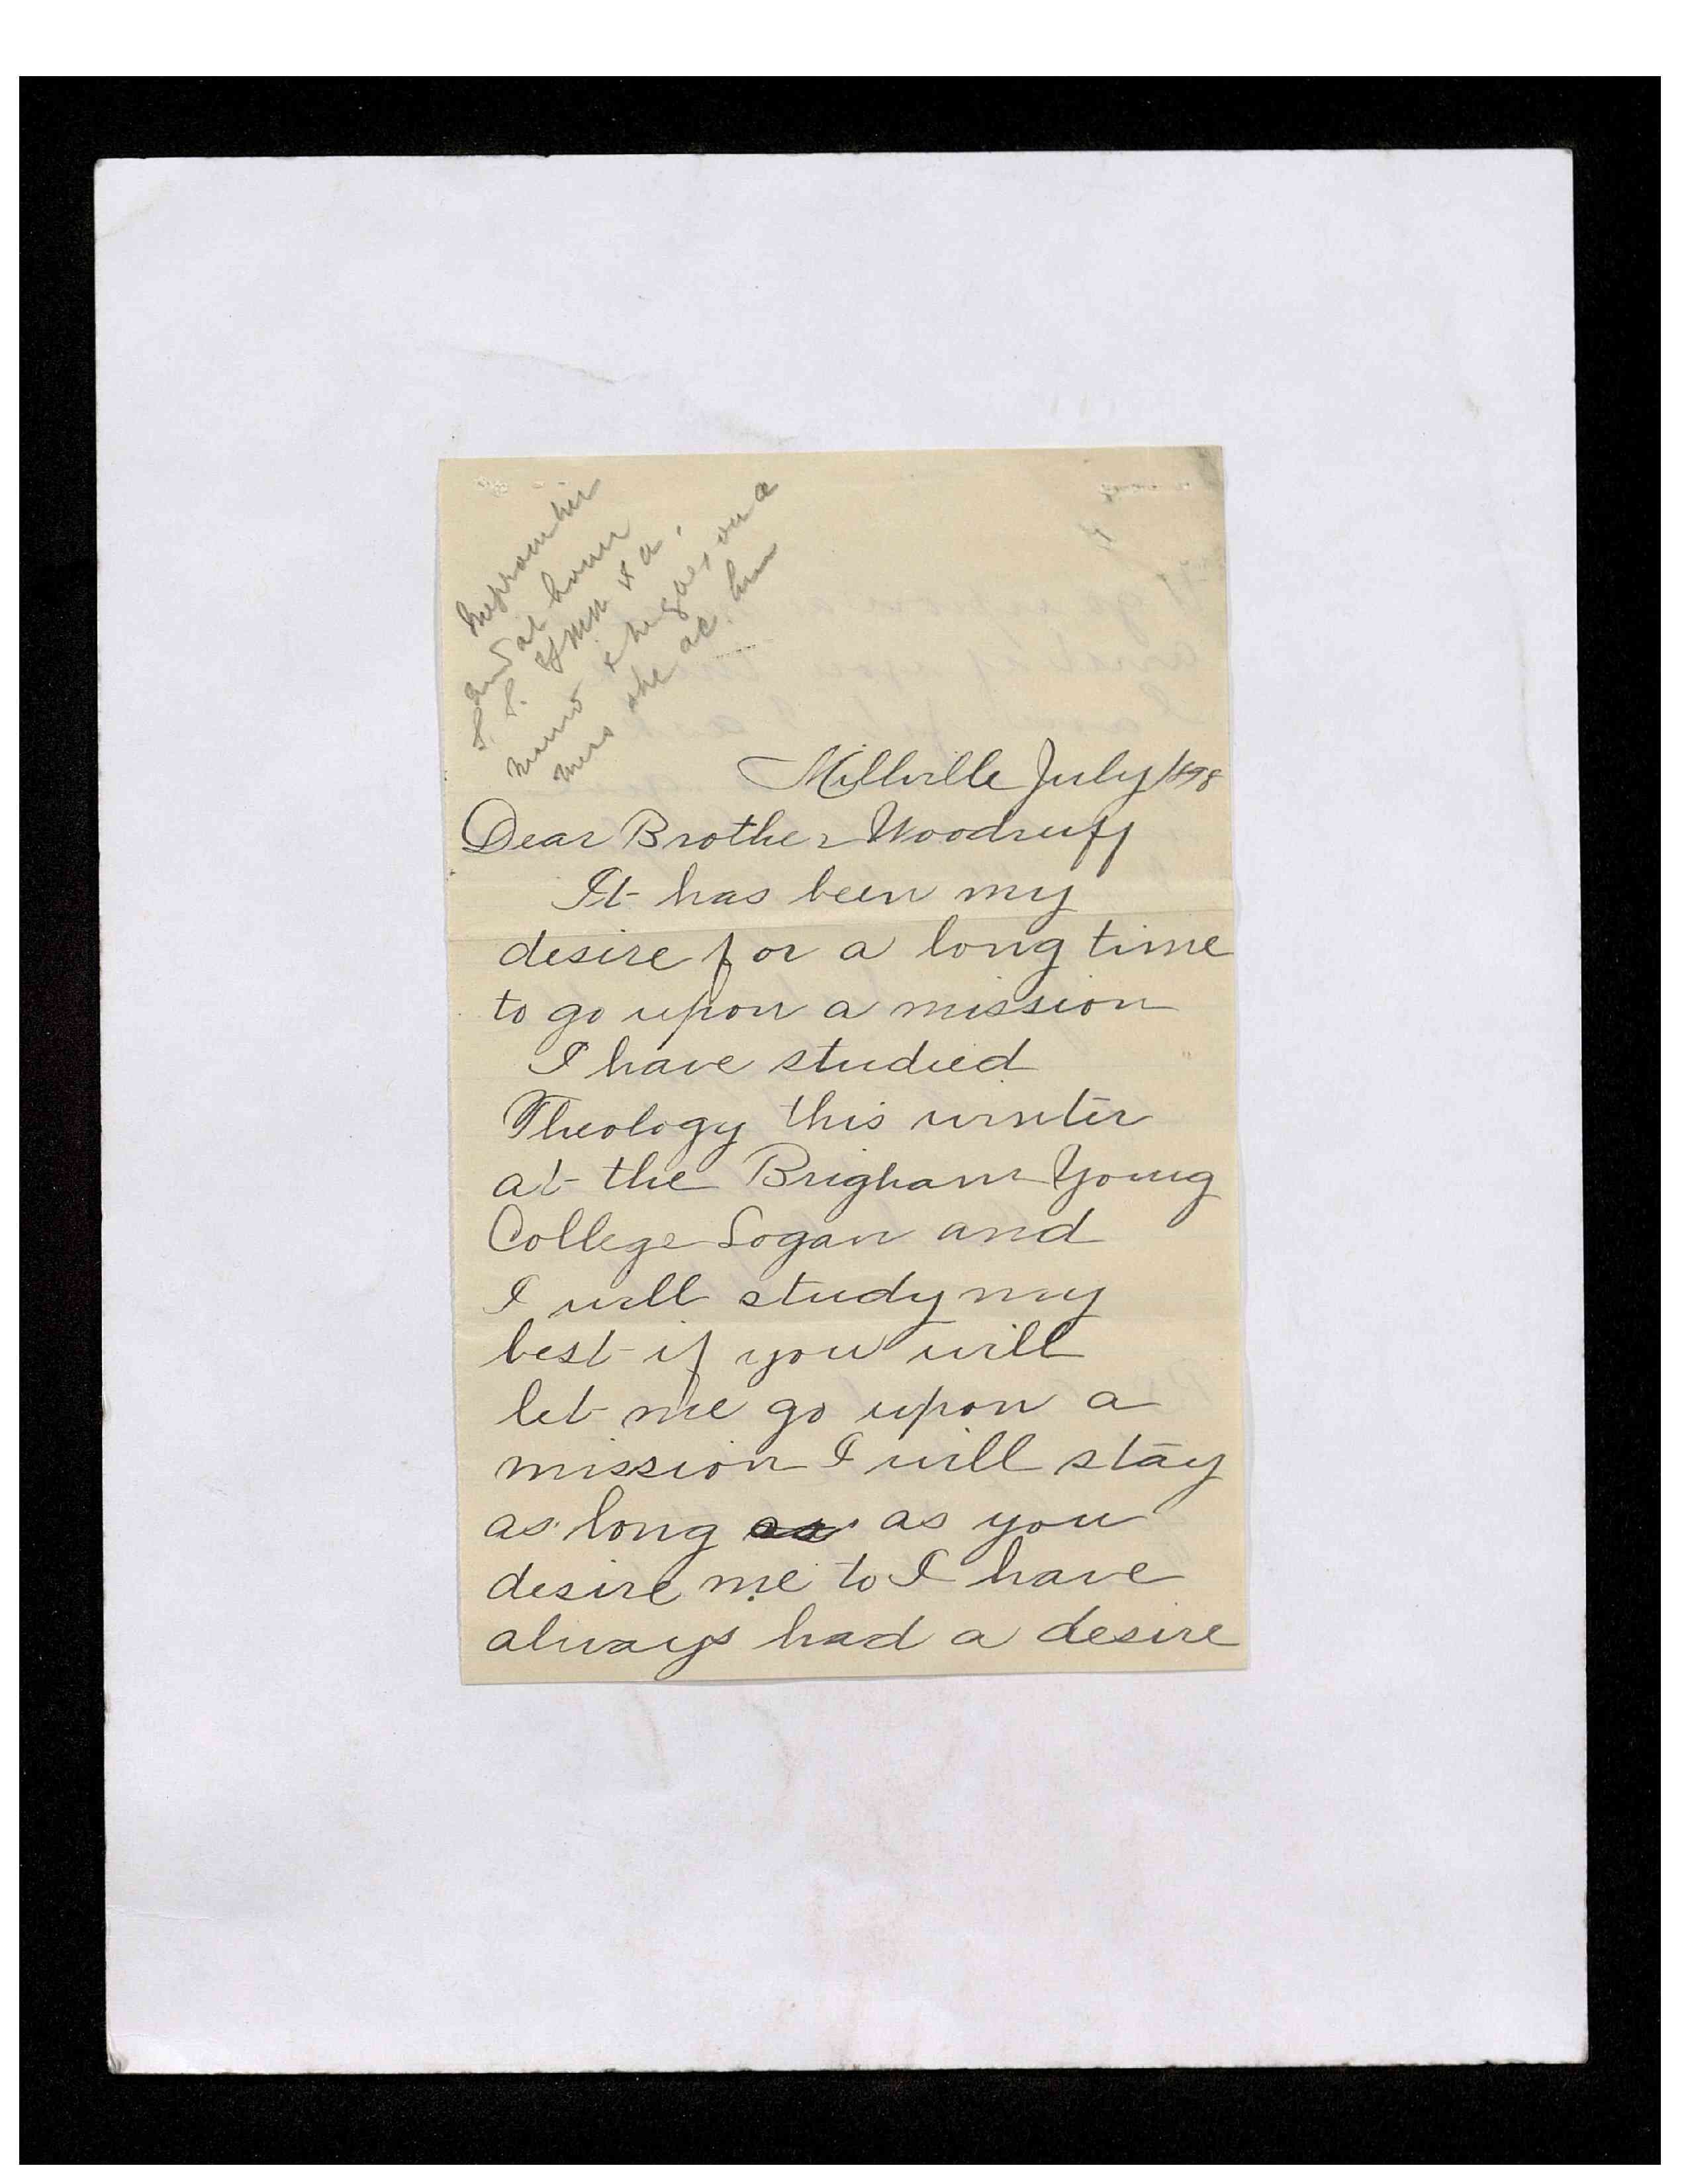 at home
S. S.
& he goes on a
she
Millville July 1898
Dear Brother Woodruff
It has been my
desire for a long time
to go upon a mission
I have studied
Theology this winter
at the Brigham Young
College Logan and
I will study my
best if you will
let me go upon a
mission I will stay
as long as as you
desire me to I have
always had a desire